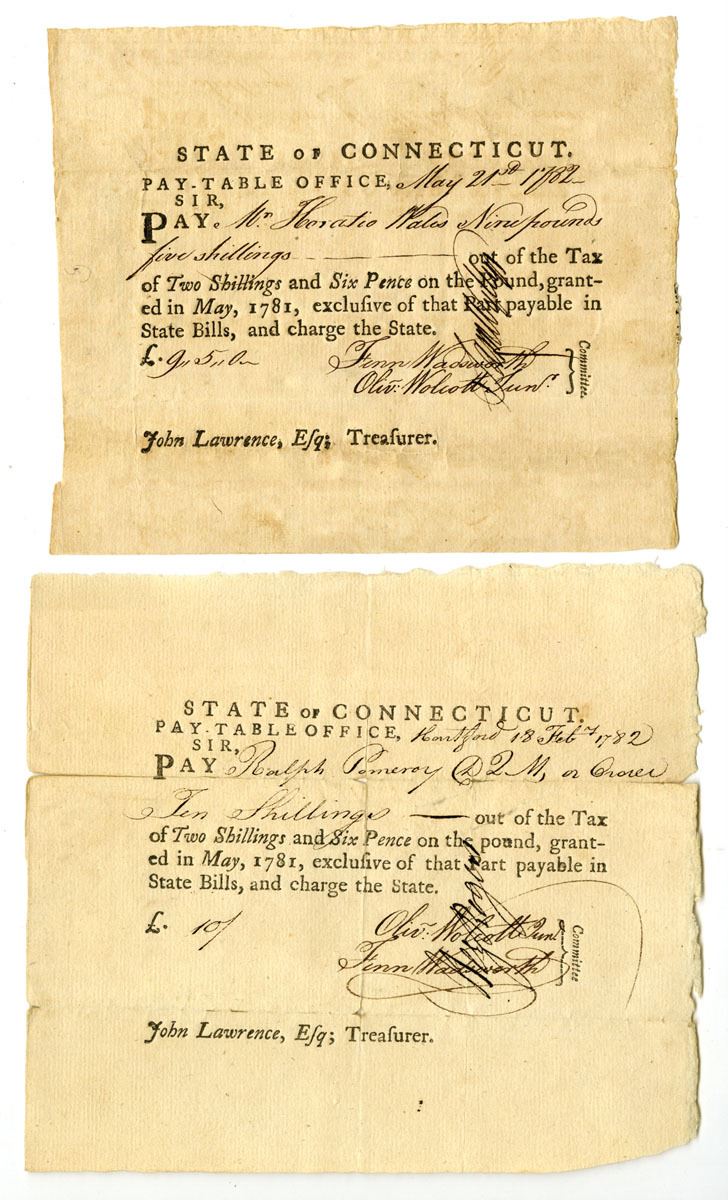 STATE OF CONNECTICUT.
PAY-TABLE OFFICE, May 21st 1782
SIR,
PAY Mr Horatio Wales Nine pounds
five shillings — out of the Tax
of Two Shillings and Six Pence on the Pound, grant-
ed in May, 1781, exclusive of that Part payable in
State Bills, and charge the State.
£. 9,, 5,, 0 Fenn Wadsworth
Oliv: Wolcott Junr.
Committee.
John Lawrence, Esq; Treasurer.
STATE OF CONNECTICUT.
PAY-TABLE OFFICE, Hartford 18 Feby 1782
SIR,
PAY Ralph Pomeroy D Q M, or Order
Ten Shillings — out of the Tax
of Two Shillings and Six Pence on the pound, grant-
ed in May, 1781, exclusive of that Part payable in
State Bills, and charge the State.
£. 10/ Oliv: Wolcott Junr
Fenn Wadsworth
Committee
John Lawrence, Esq; Treasurer.